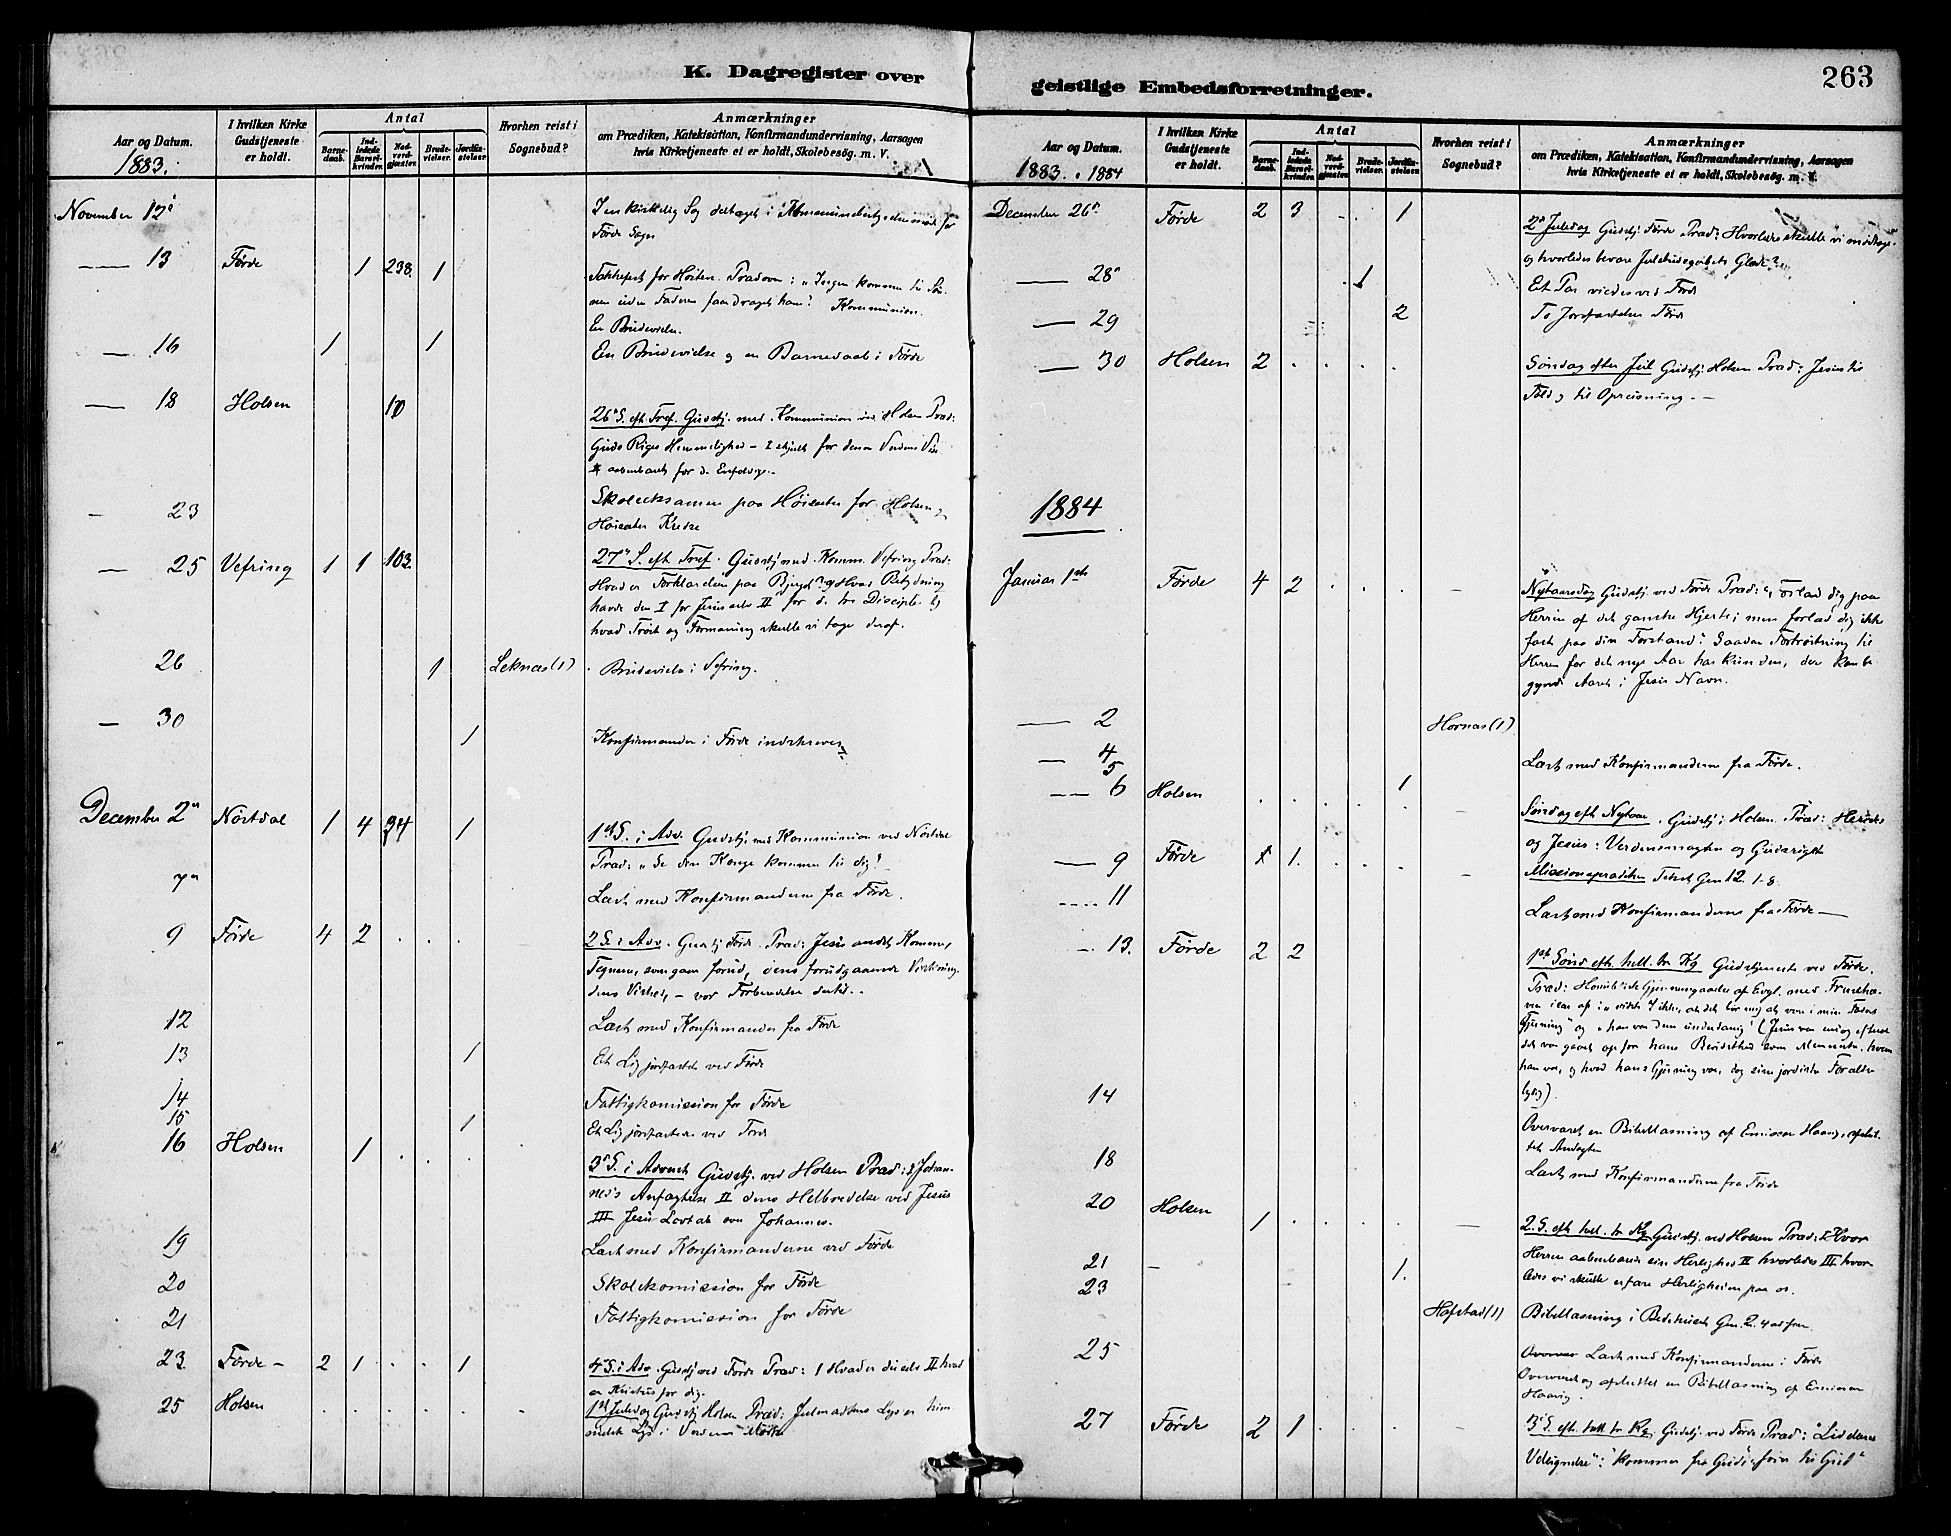 K. Dagregister over
geistlige Embedsforretninger.
263
Aar og Datum.
1883.
I hvilken Kirke Gudstjeneste er holdt.
Antal
Barnedaab.
Indledede Barselkvinder.
Nadverdgjæster.
Brudevielser.
Jordfæstelser.
Hvorhen reist i Sognebud?
Anmærkninger
om Prædiken, Katekisation, Konfirmandundervisning, Aarsagen
hvis Kirketjeneste ei er holdt, Skolebesög. m. V.
November 12
Förde Sogn
13 Förde 1 238. 1 Takkefest for Hösten. "Ingen kommer til Sön-
nen uden Faderen faar draget ham" Kommunion.
En Brudevielse.
16 1 1 En Brudevielse og en Barnedaab i Förde
18 Holsen 10 26 S. eft. Tref. Gudstj. med Kommunion Holsen Præd:
Guds Riges Hemmelighed – I skjult for denne Verdens Vise
II aabenbaret for de Enfoldige.
23 Skoleeksamen paa for Holsen og
Kreds
25 Vefring 1 1 103. 27 S. eft. Tref. Gudstj med Komm. Vefring Præd:
Hvad er Forklarelsen paa Bjerget og Hvad Betydning
havde den I for Jesus selv II for de tre Disciple og
hvad Tröst og Formaning skulle vi tage deraf.
26 1 Leknes (1) Brudevielse i Vefring.
30 1 Konfirmander i Förde indskreves
December 2 Nöstdal 1 4 34 1 1st S. i Adv. Gudstj. med Kommunion ved Nöstdal
Præd: "Se din Konge kommer til dig"
7 Læst med Konfirmanderne fra Förde.
9 Förde 4 2 2 S. i Adv. Gudstj Förde. Præd: Jesu andet Komme,
Tegnene, som gaar forud, dens forudgaaende
dens Vished, – vor Forberedelse dertil.
12 Læst med Konfirmander fra Förde
13 1 Et Lig jordfæstet ved Förde
14 Fattigkomission for Förde
15 1 Et Lig jordfæstede ved Förde
16 Holsen 1 3 S. i Advent Gudstj. ved Holsen Præd: I Johan-
nes's Anfægtelse II dens Helbredelse ved Jesus
III Jesu Lovtale over Johannes.
19 Læst med Konfirmanderne ved Förde
20 Skolekomission for Förde
21 Fattigkomission for Förde
23. Förde – 2 1 1 4 S. i Adv. Gudstj ved Förde Præd: I Hvad er du selv II hvad
er Kristus for dig.
25 Holsen 1st Juledag Gudstj Holsen Præd: Julenattens Lys er him-
melsk Lys i Verdens Mörke
Aar og Datum.
1883. 1884
I hvilken Kirke Gudstjeneste er holdt.
Antal
Barnedaab.
Indledede Barselkvinder.
Nadverdgjæster.
Brudevielser.
Jordfæstelser.
Hvorhen reist i Sognebud?
Anmærkninger
om Prædiken, Katekisation, Konfirmandundervisning, Aarsagen
hvis Kirketjeneste ei er holdt, Skolebesög. m. V.
December 26 Förde 2 3 1 2 Juledag Gudstj. Förde Præd: Hvorledes skulle vi modtage
og hvorledes bevare Julebudskabets Glæde?
28 1 Et Par viedes ved Förde
29 2 To Jordfæstelser Förde
30 Holsen 2 Söndag efter Jul Gudstj. Holsen Præd: Jesus til
Fald og til Opreisning. –
1884
Januar 1st Förde 4 2 Nytaarsdag Gudstj ved Förde Præd: "Forlad dig paa
Herren af det ganske Hjerte; men forlad dig ikke
fast paa din Forstand" Saadan Fortröstning til
Herren for det nye Aar har kun den, der kan be-
gynde Aaret i Jesu Navn.
2 Hornes (1)
4
5 Læst med Konfirmanderne fra Förde.
6 Holsen 1 Söndag eft Nytaar. Gudstj i Holsen Præd: Herodes
og Jesus: Verdensmagten og Gudsriget
9 Förde 1 1. Missionsprædiken Tekst Gen 12. 1-8.
11 Læst med Konfirmanderne fra Förde –
13. Förde 2 2 1st Sönd eft. hell. tr. Kg Gudstjeneste ved Förde.
Gjerning" og "han var dem underdanig"
han var, og hvad hans Gjerning var, dog sine jordiske Forældre
lydig).
14 Overværet en Bibellæsning af Emissær Haavig, afslut-
tet Andagten
18 Læst med Konfirmanderne fra Förde
20 Holsen 1 2. S. eft hell. tr Kg Gudstj. ved Holsen Præd: I Hvor
Herren aabenbarede sin Herlighed II hvorledes III hvor-
ledes vi skulle erfare Herligheden paa os.
21 – 1.
23 Hafstad (1) Bibellæsning i Bedehuset Gen. 2. 4
25 Læst med Konfirmanderne i Förde
Overværet og afsluttet en Bibellæsning af Emissær
Haavig.
27 Förde 2 1 3 S. eft. hell. tr Kg. Gudstj. ved Förde Præd:
: kommer fra Gud til Gud"